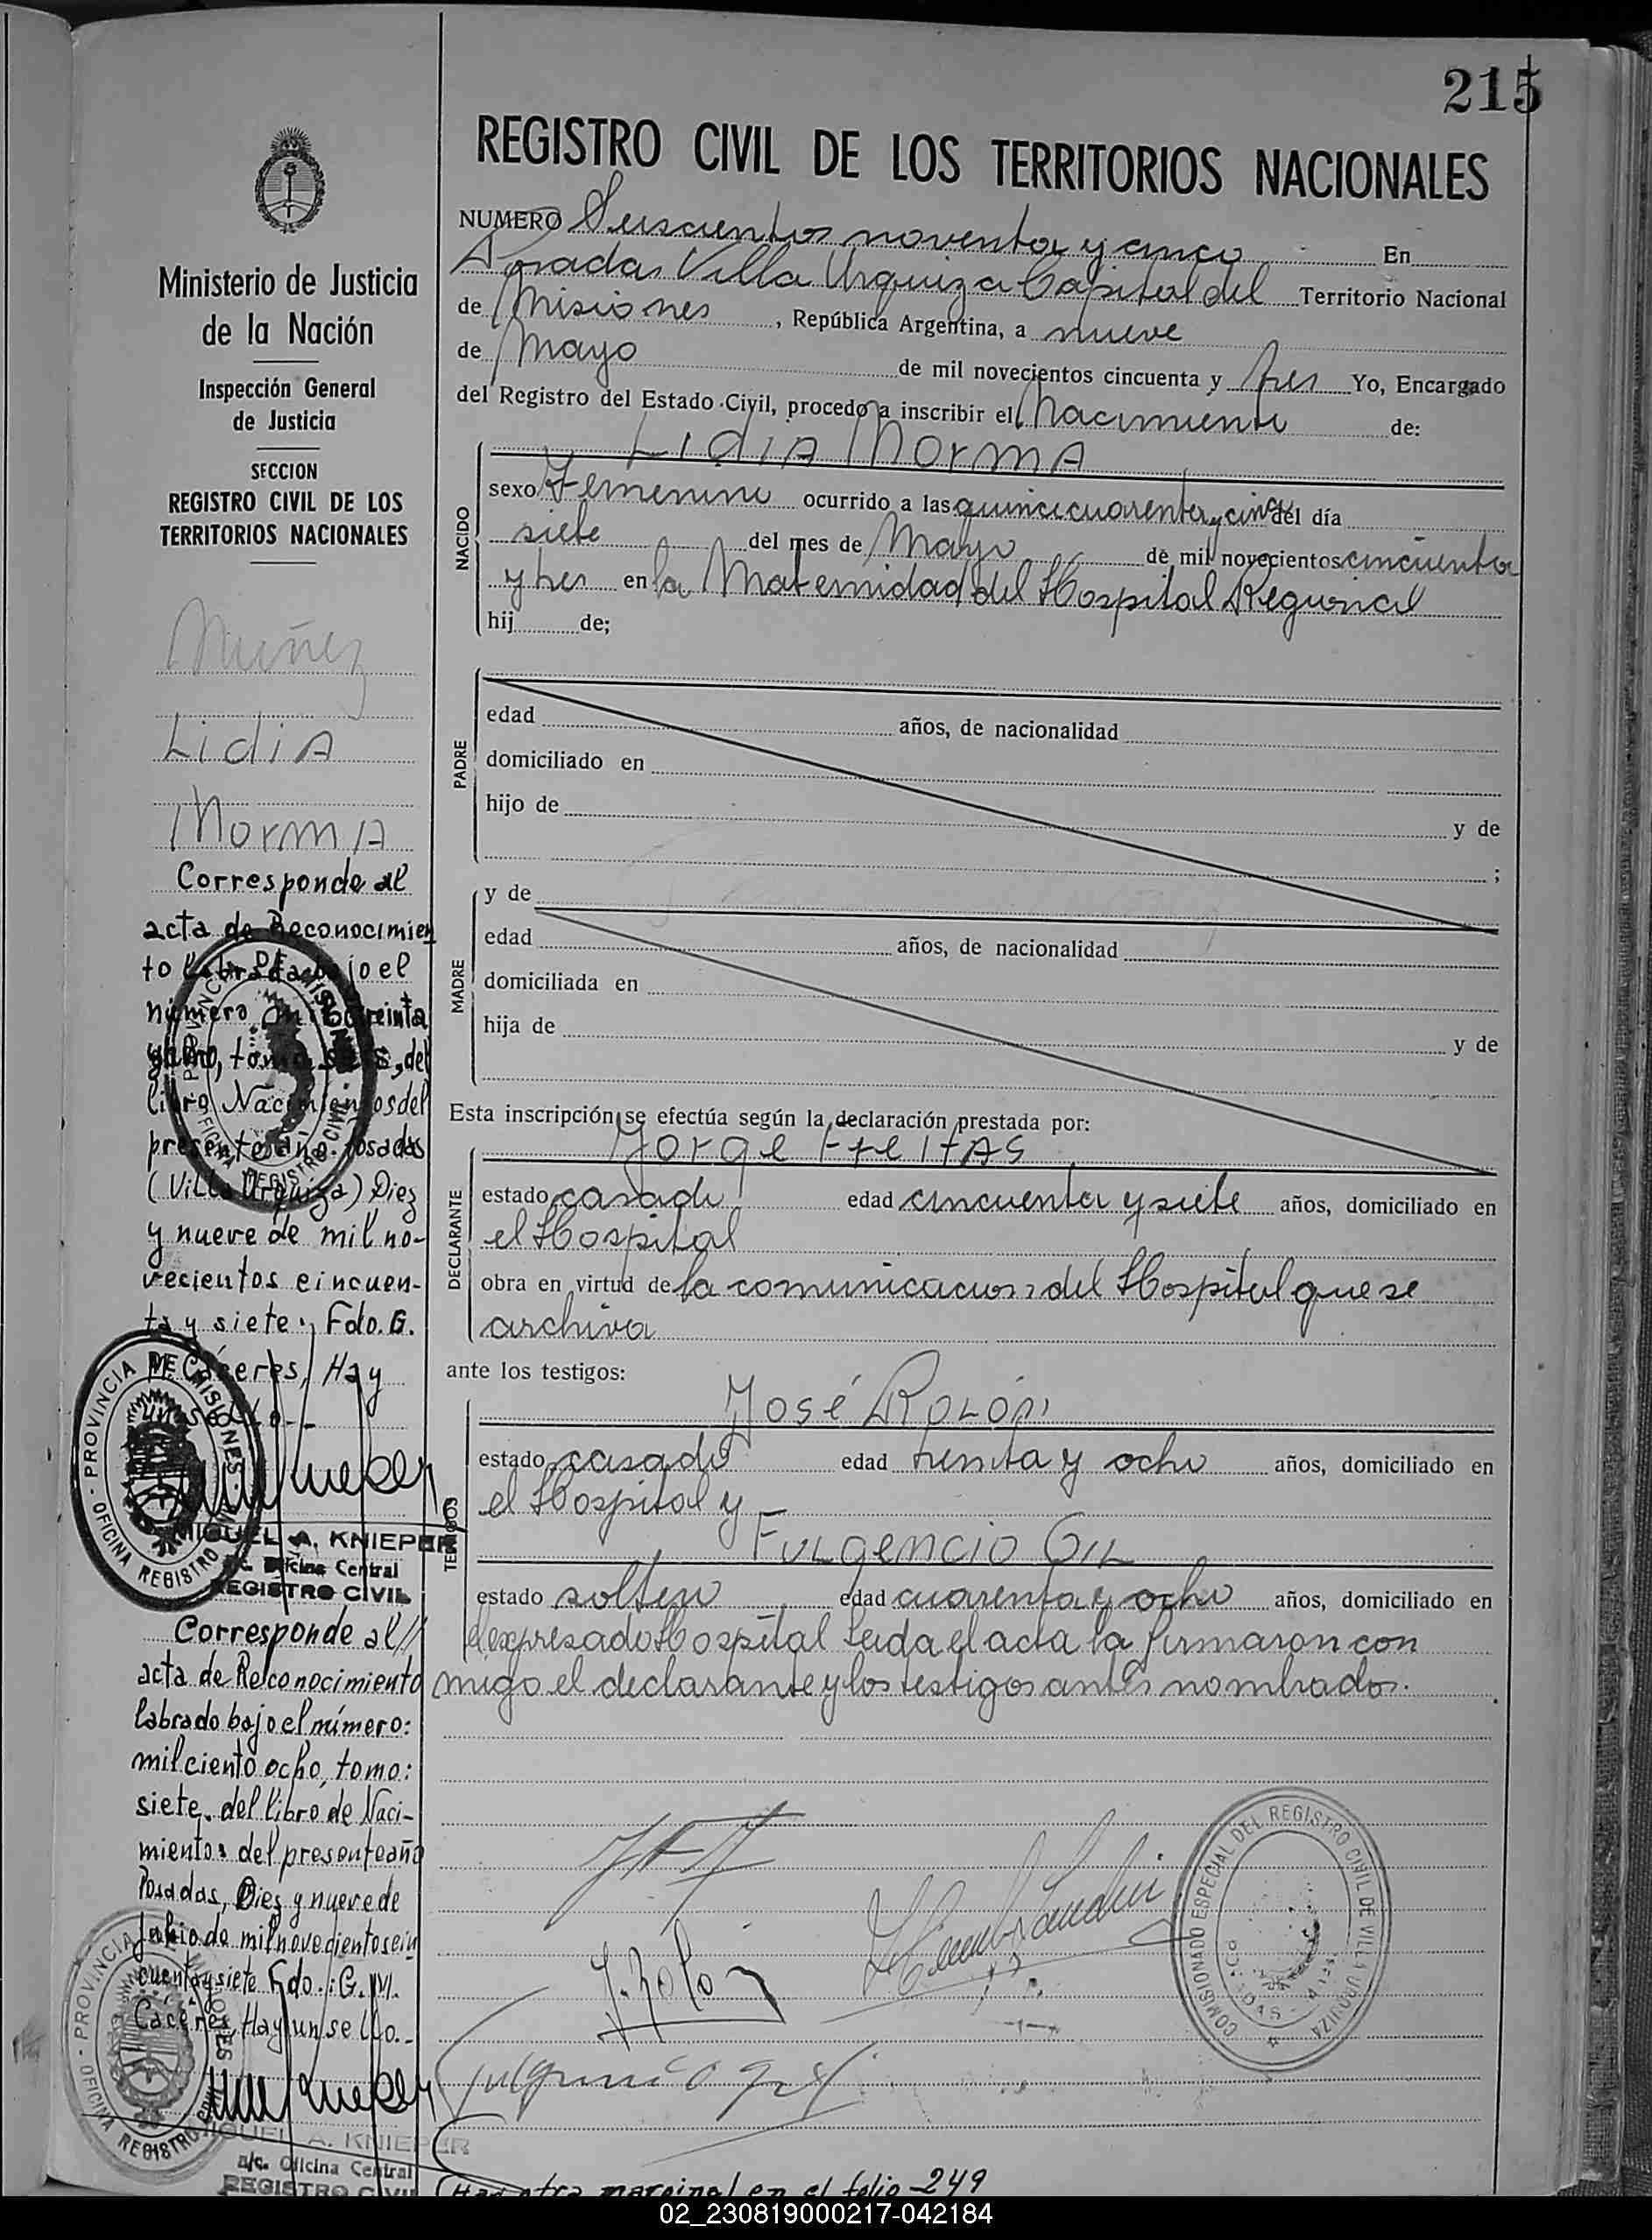 215
REGISTRO CIVIL DE LOS TERRITORIOS NACIONALES
NUMERO Seiscientos noventa y cinco En
Posadas Villa Urquiza Capital del Territorio Nacional
de Misiones, República Argentina, a nueve
de Mayo de mil novecientos cincuenta y tres Yo, Encargado
del Registro del Estado Civil, procedo a inscribir el Nacimiento de:
Lidia Norma
NACIDO
sexo Femenino ocurrido a las quince cuarenta y cinco del día
siete del mes de Mayo de mil novecientos cincuenta
y tres en la Maternidad del Hospital Regional
hij de;
PADRE
edad años, de nacionalidad
domiciliado en
hijo de y de
;
MADRE
y de
edad años, de nacionalidad
domiciliada en
hija de y de
Esta inscripción se efectúa según la declaración prestada por:
Jorge Freitas
DECLARANTE
estado casado edad cincuenta y siete años, domiciliado en
el Hospital
obra en virtud de la comunicacion del Hospital que se
archiva
ante los testigos:
José Rolón
TESTIGOS
estado casado edad treinta y ocho años, domiciliado en
el Hospital y
Fulgencio Gil
estado soltero edad cuarenta y ocho años, domiciliado en
el expresado Hospital Leida el acta la firmaron con
migo el declarante y los testigos antes nombrados.
J. Rolon
Fulgencio Gil
COMISIONADO ESPECIAL DEL REGISTRO CIVIL DE VILLA URQUIZA
Hay otra marginal en el folio 249
Ministerio de Justicia
de la Nación
Inspección General
de Justicia
SECCION
REGISTRO CIVIL DE LOS
TERRITORIOS NACIONALES
Nuñez
Lidia
Norma
Corresponde al
acta de Reconocimien
to labrada bajo el
número mil treinta
y uno, tomo seis, del
libro Nacimientos del
presente año. Posadas
(Villa Urquiza) Diez
y nueve de mil no-
vecientos cincuen-
ta y siete. Fdo. G.
M. Cáceres, Hay
un sello.-
PROVINCIA DE MISIONES
OFICINA REGISTRO CIVIL
MIGUEL A. KNIEPER
a/c. Oficina Central
REGISTRO CIVIL
Corresponde al//
acta de Reconocimiento
labrado bajo el número:
mil ciento ocho, tomo:
siete. del libro de Naci-
mientos del presente año
Posadas, Diez y nueve de
Julio de mil novecientos cin
cuenta y siete Fdo.: G. M.
Cáceres Hay un sello.-
PROVINCIA DE MISIONES
OFICINA REGISTRO CIVIL
MIGUEL A. KNIEPER
a/c. Oficina Central
REGISTRO CIVIL
02_230819000217-042184